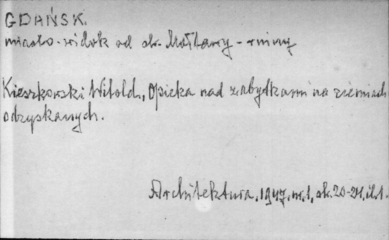 GDAŃSK.
miasto - widok od ul. Mołtawy - ruiny
Kieszkowski Witold, Opieka nad zabytkami na ziemiach
odzyskanych.
Architektura, 1947, nr. 1, ok. 20-21, il. 1.